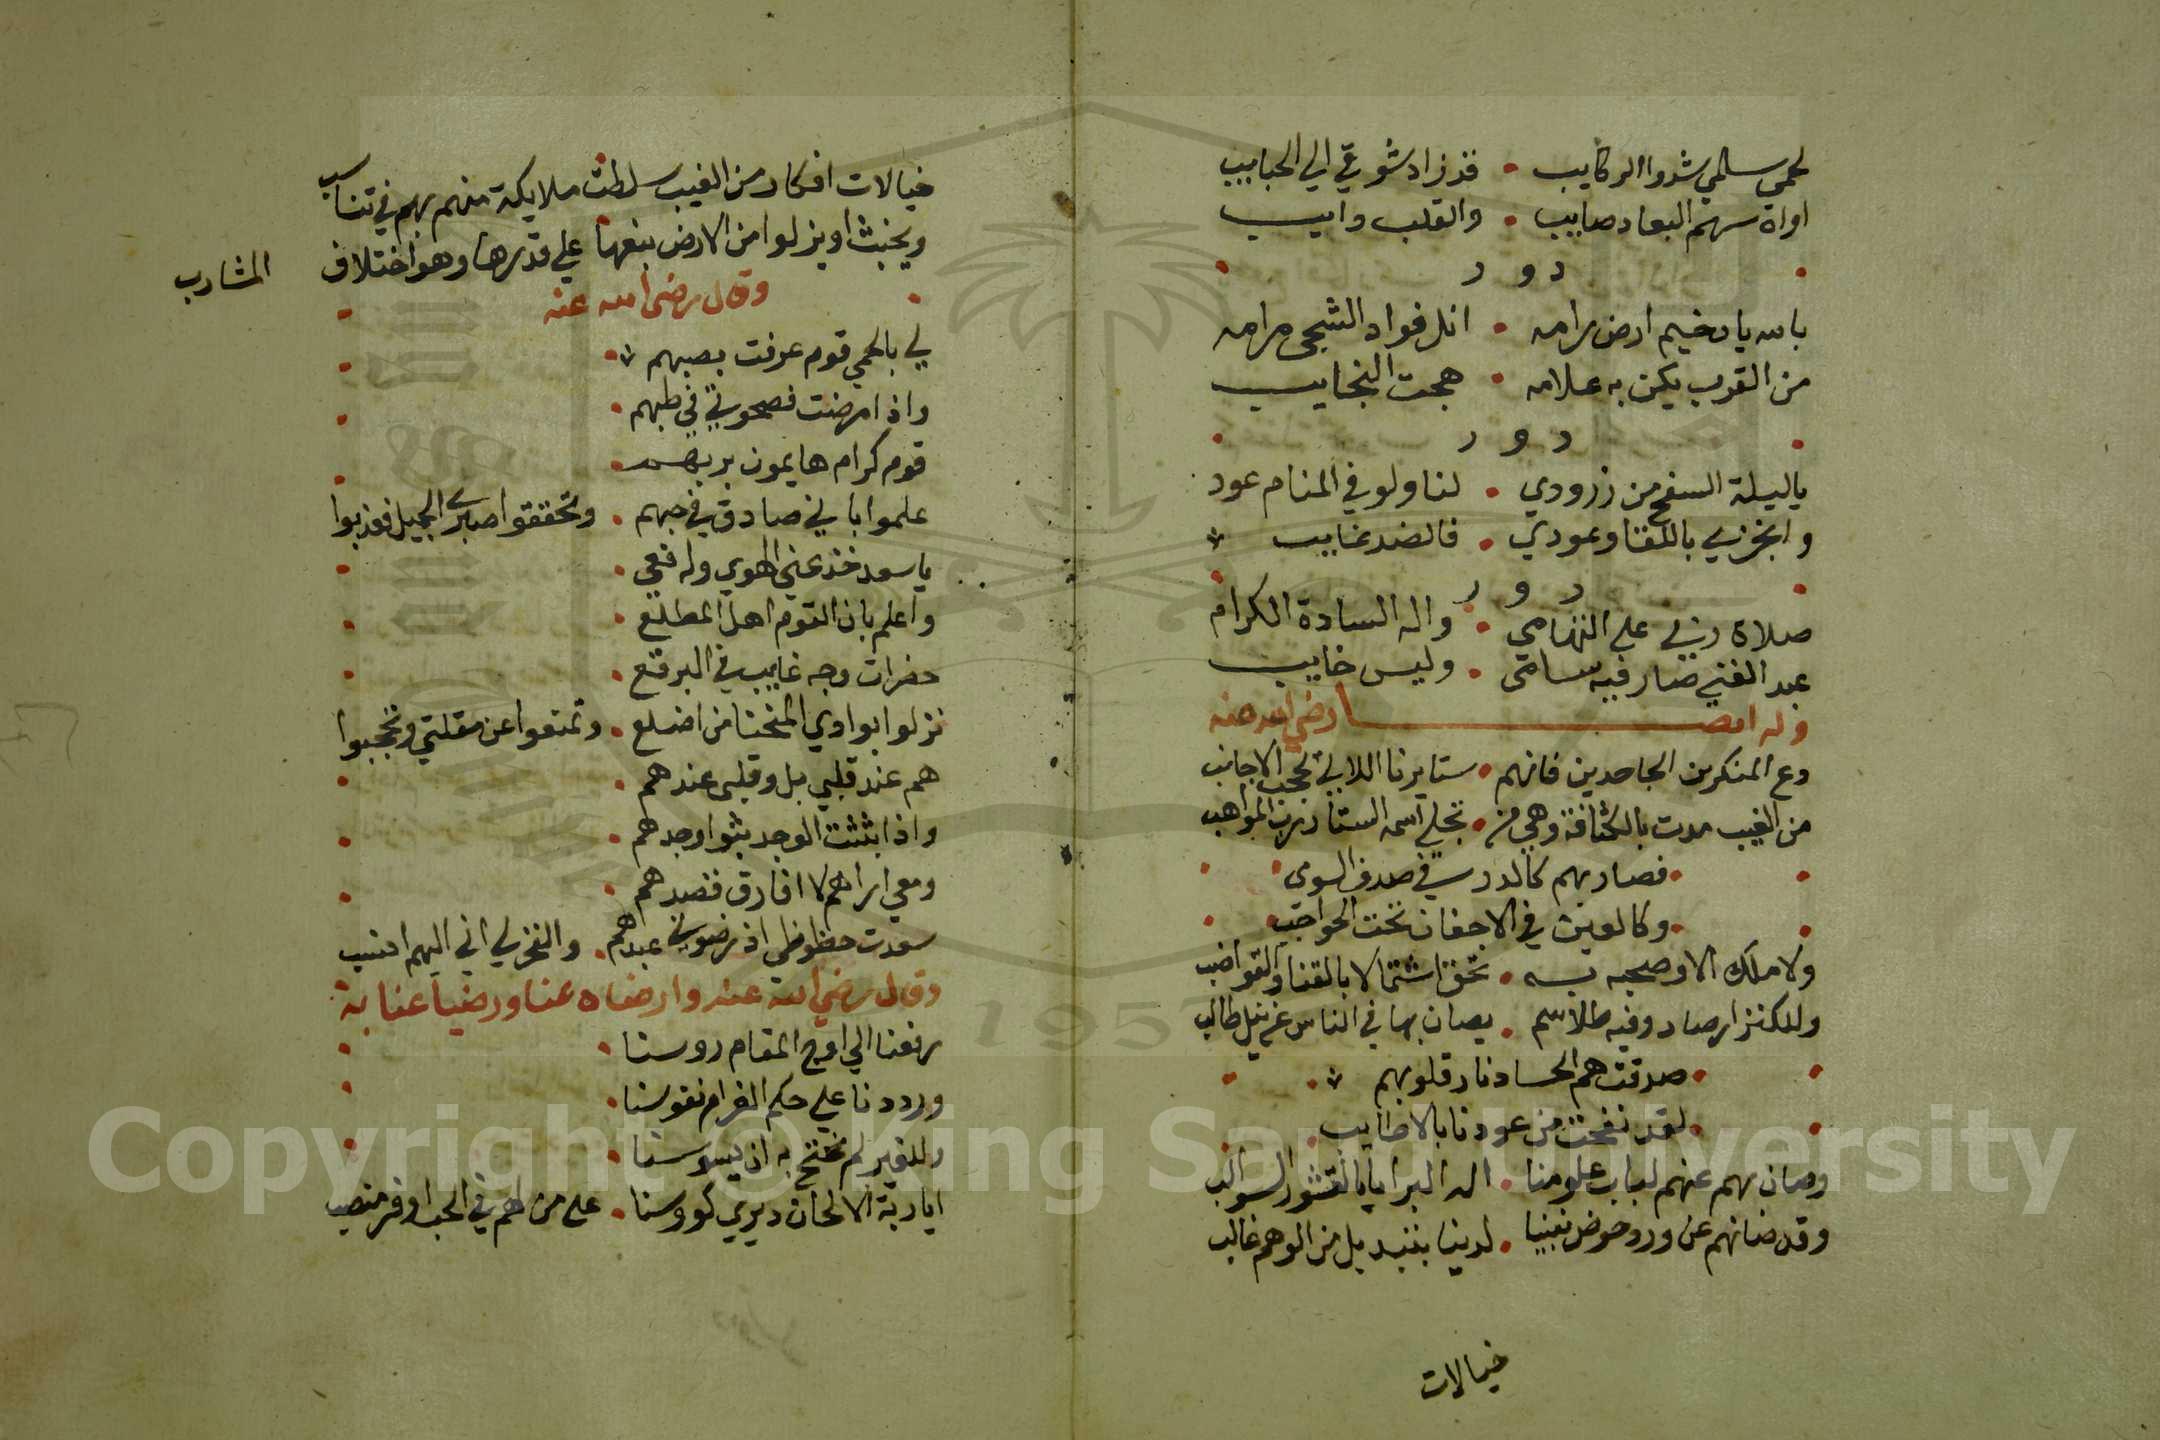 لحمي سلمي شدوا الركايب • قد زاد شوقي الي الحبايب
اواه سهم البعاد صايب • والقلب دايب
دور
بالله يا مخيم ارض رامه • انل فواد الشجي مرامه
من القرب يكن به علامه • هجت النجايب
دور
ياليلة السفح من زرودي • لنا ولو في المنام عود
وانجزي باللقا وعودي • فالضد غايب
دور
صلاة ربي علي التهامي • واله السادة الكرام
عبد الغني صار فيه سامي • وليس خايب
وله ايضا رضي الله عنه
دع المنكرين الجاحدين فانهم • ستايرنا اللا بي لحجب الاجانب
من الغيب مدت بالكثافة وهي من • تجلي اسمه الستار رب المواهب
• فصار بهم كالدر في صدف السوي
• وكالعين في الاجفان تحت الحواجب
ولا ملك الا وصحبه به • تحف اشتمالا بالقنا والقواضب
وللكنز ارصاد وفيه طلاسم • يصان بها في الناس عن نيل طالب
• صدقت هم الحساد نار قلوبهم
• لقد نفحت من عودنا بالاطايب
وصان بهم عنهم لباب علومنا • اله البرايا بالقشور السوالب
وقد صانهم عن ورد حوض نبينا • لدينا بتبديل من الوهم غالب
خيالات
خيالات افكار من الغيب سلطت ملايكة منهم بهم في تناسب
ويخبث او يزلو من الارض نبعها علي قدرها وهو اختلاف المشارب
وقال رضي الله عنه
لي بالحمي قوم عرفت بصبهم
واذا مرضت فصحوتي في طبهم
قوم كرام هايمون بربهم
علموا باني صادق في حبهم • وتحققوا صبري الجميل فعذبوا
يا سعد خذ عني الهوي وله فعي
واعلم بان القوم اهل المطلع
حضرات وجه غايب في البرقع
نزلوا بوادي المنحنا من اضلع • وتمنعوا عن مقلتي وتحجبوا
هم عند قلبي بل وقلبي عندهم
واذا بثثت الوجد بثوا وجدهم
ومعي اراهم لا افارق قصدهم
سعدت حظوظي اذ رضوني عبدهم • والفخر لي اني اليهم انسب
وقال رضي الله عنه وارضاه عنا ورضي عنا به
رفعنا الي اوج المقام روسنا
ورددنا علي حكم الغرام نفوسنا
وللغير لم نحتج به ان يسوسنا
ايا ربة الالحان ديري كووسنا • علي من لهم في الحب اوفر منصب